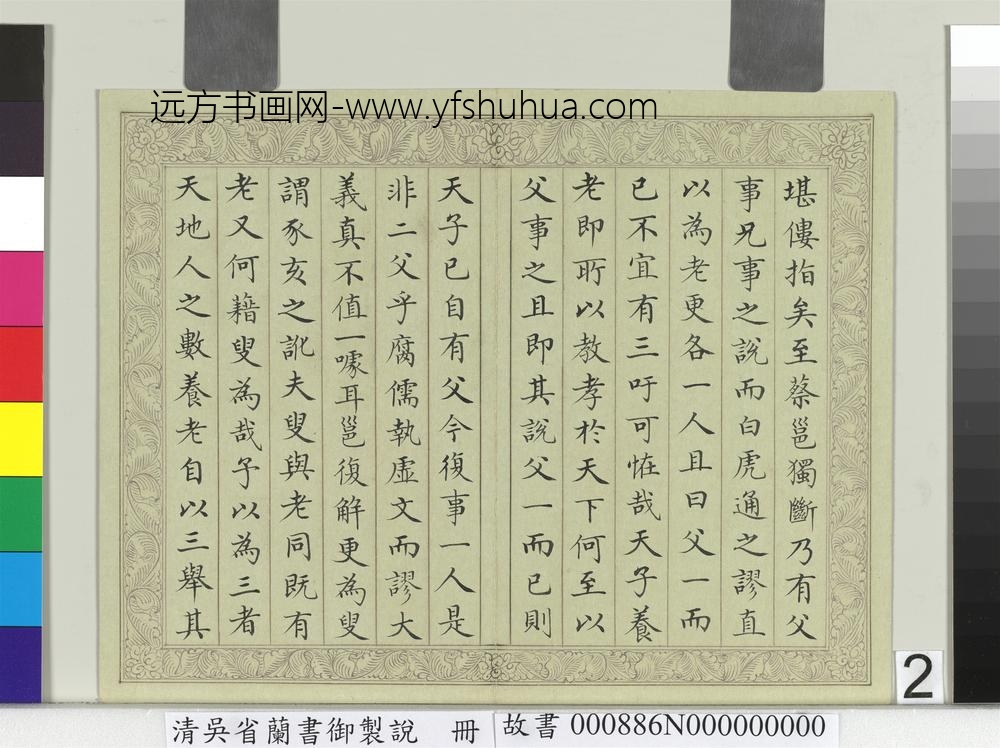 远方书画网-www.yfshuhua.com
堪僂指矣至蔡邕獨斷乃有父
事兄事之說而白虎通之謬直
以為老更各一人且曰父一而
已不宜有三吁可恠哉天子養
老即所以教孝於天下何至以
父事之且即其說父一而已則
天子已自有父今復事一人是
非二父乎腐儒執虛文而謬大
義真不值一噱耳邕復解更為叟
謂豕亥之訛夫叟與老同既有
老又何藉叟為哉予以為三者
天地人之數養老自以三舉其
2
清吳省蘭書御製說 冊
故書 000886N000000000